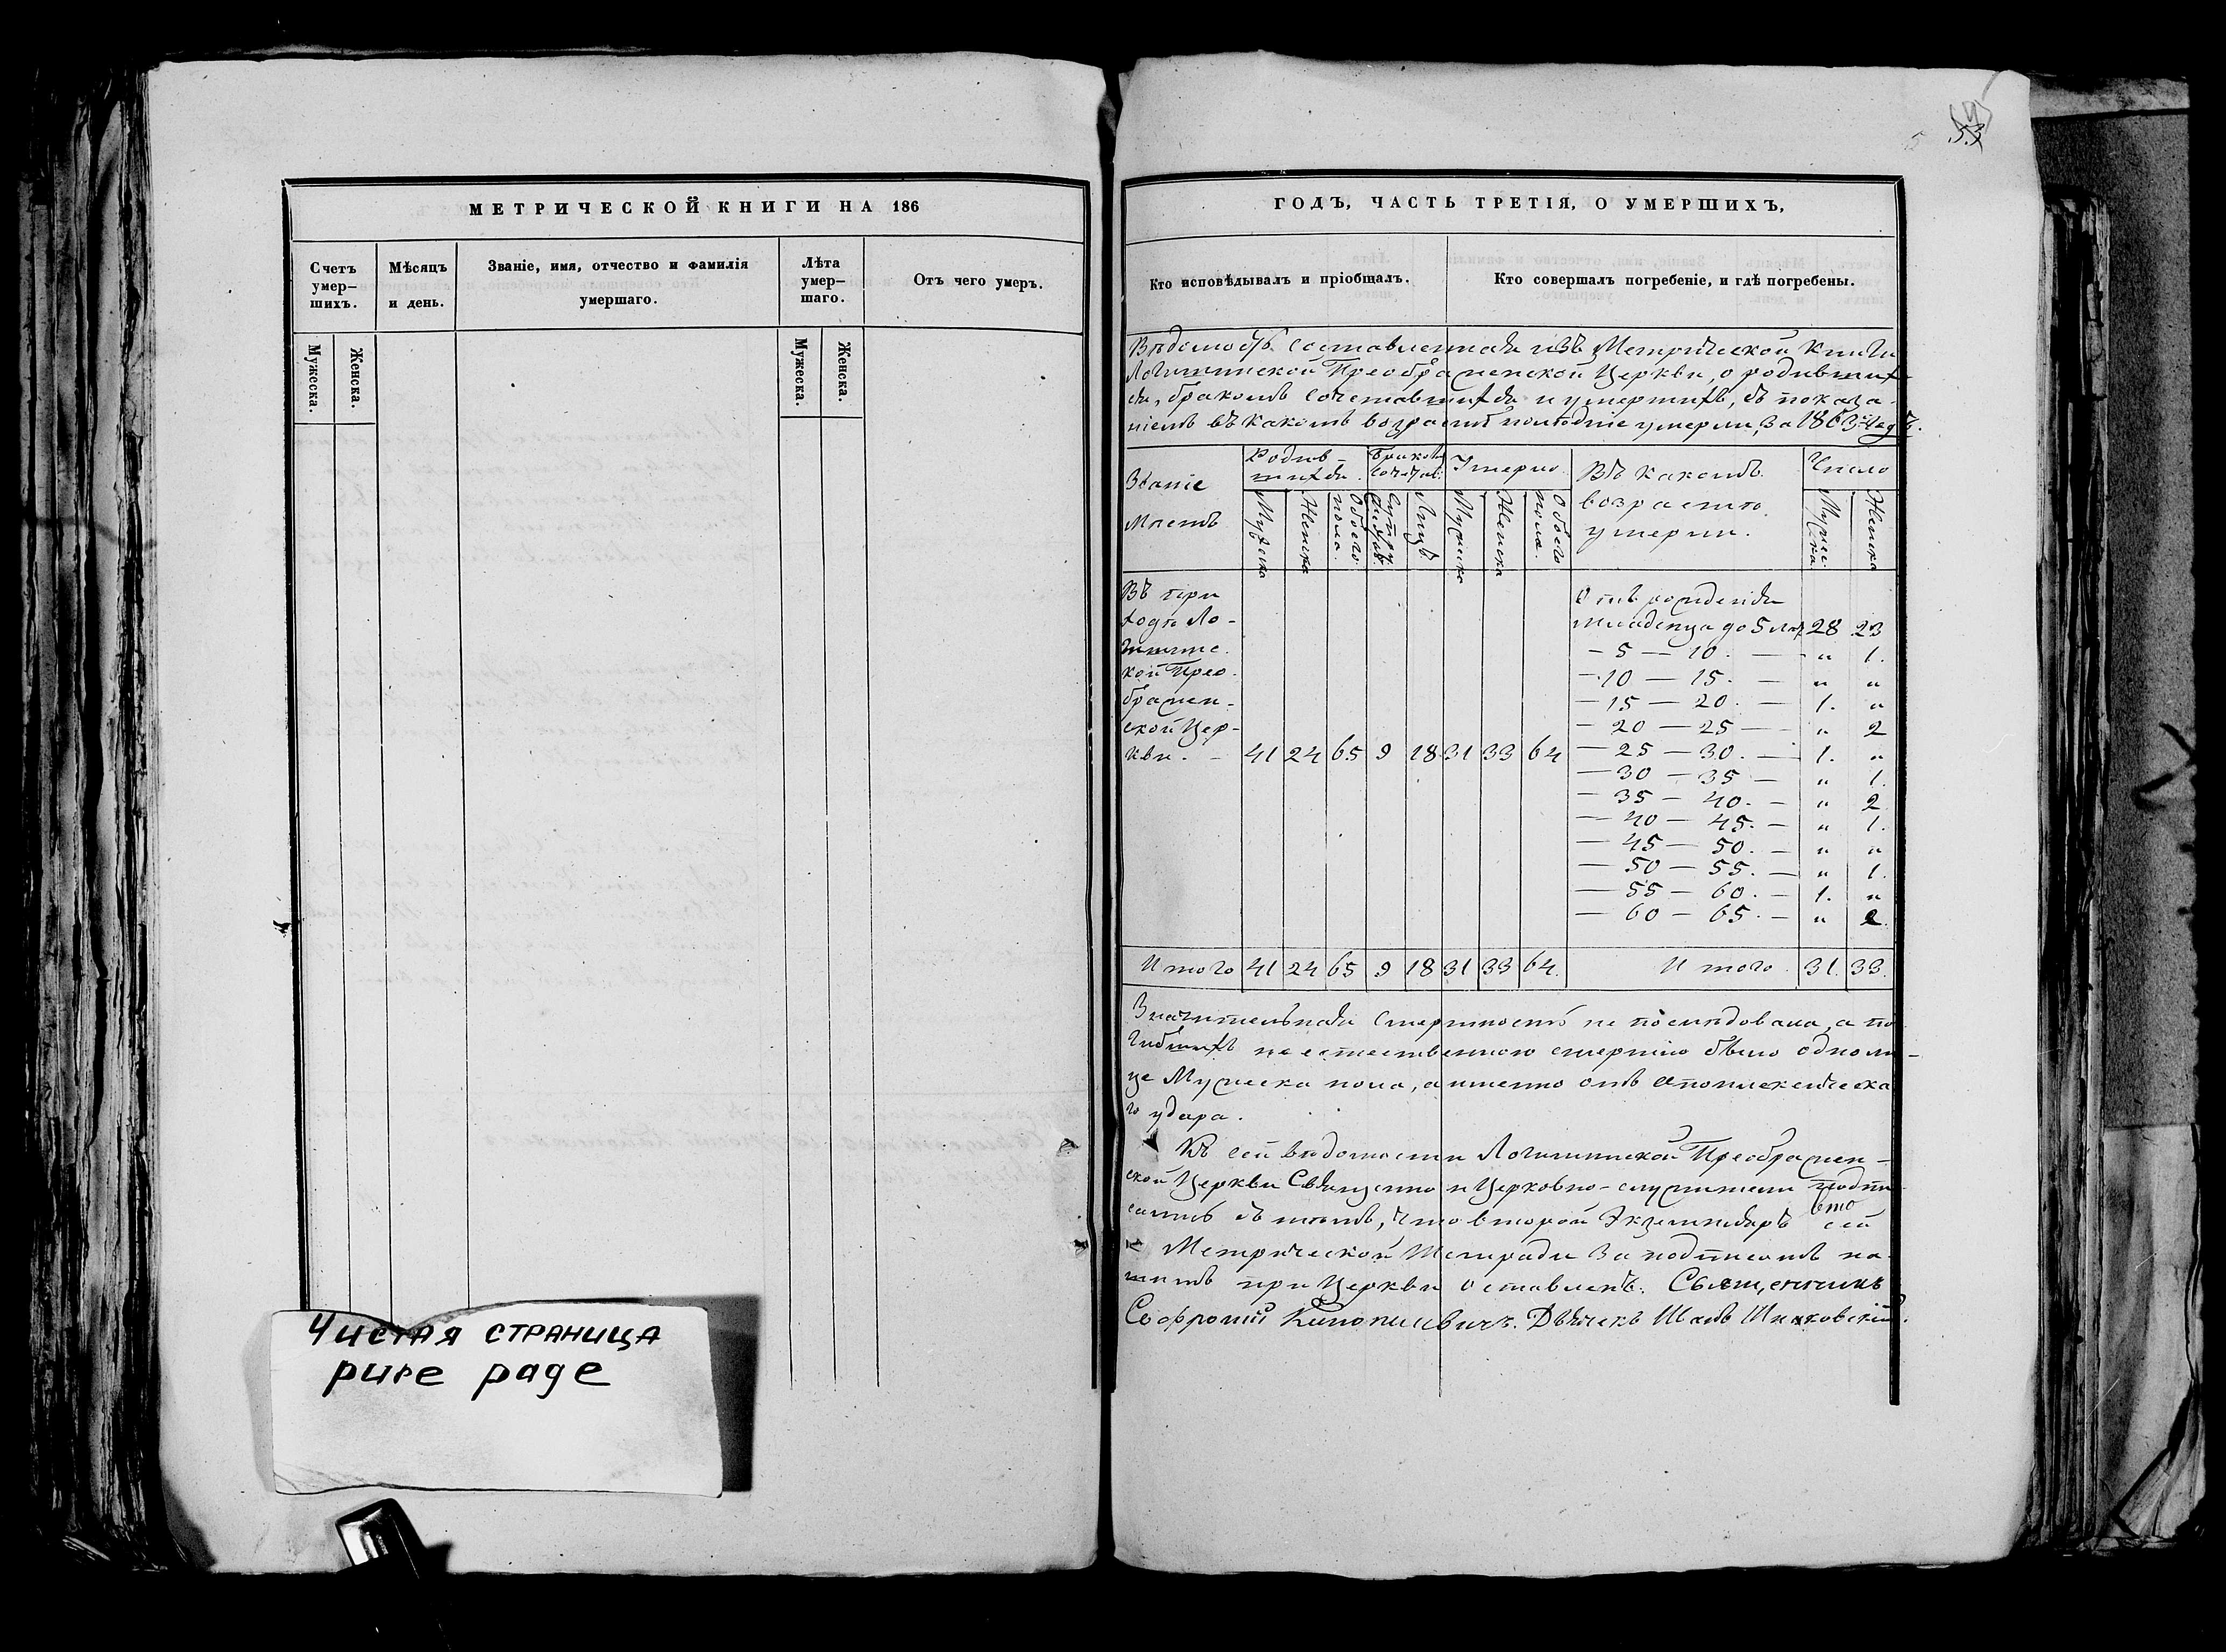 МЕТРИЧЕСКОЙ КНИГИ НА 186
Счетъ умер—шихъ.
Мѣсяцъ и день.
Званіе, имя, отчество и фамилія умершаго.
Лѣта умер—шаго.
Отъ чего умеръ.
Мужеска.
Женска.
Мужеска.
Женска.
Чистая страница
pure page
53
ГОДЪ, ЧАСТЬ ТРЕТІЯ, О УМЕРШИХЪ,
Кто исповѣдывалъ и пріобщалъ.
Кто совершалъ погребеніе, и гдѣ погребены.
Вѣдомость составленная изъ Метрической Книги
Логишинской Преображенской Церкви, о родивших-
ся, бракомъ сочетавшихся и умершихъ, съ показа-
ніемъ въ какомъ возрастѣ послѣдніе умерли, за 1863й годъ.
Званіе Мѣстъ
Родив-шихся.
Браковъ Сочетав.
Умерло
Въ какомъ возрастѣ умерли.
Число
Мужеска
Женска
Обоего пола.
Лицъ
Мужеска
Женска
Обоего пола.
Мужес-ка.
Женска
Въ при
ходѣ Ло-
гишинс
кой Прео
бражен-
ской Цер-
кви. — 41 24 65 9 18 31 33 64
Отъ рожденія
младенца до 5 лѣтъ 28 23
— 5 — 10. — „ 1.
— 10 — 15. — „ „
— 15 — 20. — 1. „
— 20 — 25 — „ 2
— 25 — 30. — 1. „
— 30 — 35 — „ 1.
— 35 — 40. — „ 2
— 40 — 45. — „ 1.
— 45 — 50. — „ „
— 50 — 55. — „ 1.
— 55 — 60. — 1. „
— 60 — 65. — „ 2
Итого 41 24 65 9 18 31 33 64. Итого. 31. 33.
Значительная смертность не послѣдовала, а по
гибшихъ не естественною смертію было одно ли-
це Мужеска пола, а именно отъ апоплексическа
го удара.
Къ сей вѣдомости Логишинской Преображен-
ской Церкви Священно и Церковно-служители подпи
сались въ томъ, что второй Экземпляръ сей
Метрической Тетради за подписомъ на-
шимъ при Церкви оставленъ. Священникъ
Софроній Дьячекъ